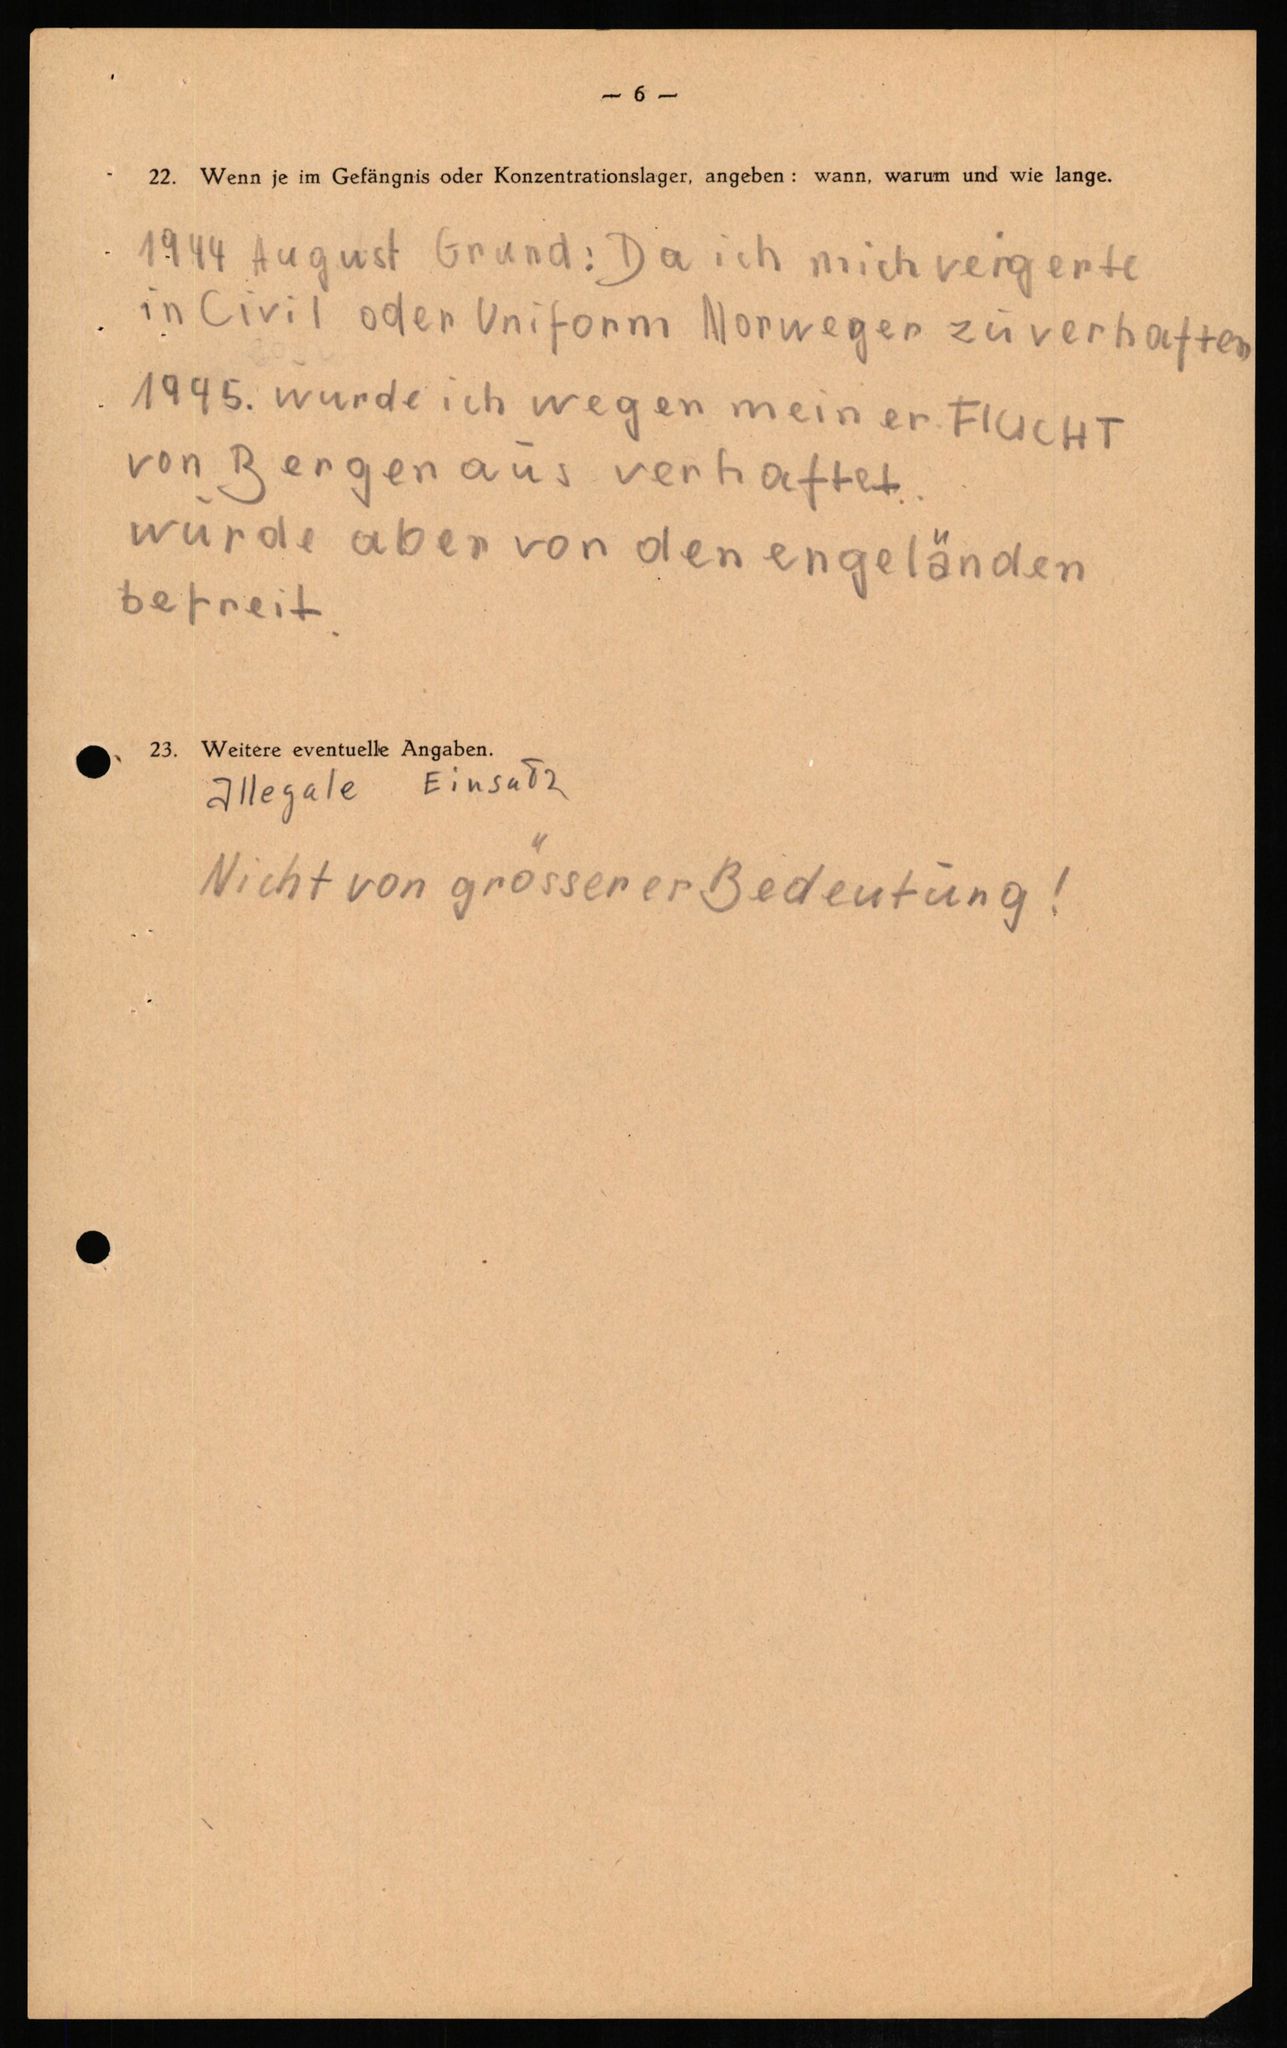 — 6 —
22. Wenn je im Gefängnis oder Konzentrationslager, angeben : wann, warum und wie lange.
1944 August Grund: Da ich mich veigerte
in Civil oder Uniform Norweger zu verhaften
1945. wurde ich wegen meiner FlUCHT
von Bergen aus verhaftet.
wurde aber von den engeländen
befreit.
23. Weitere eventuelle Angaben.
Illegale Einsatz
Nicht von grösserer Bedeutung!